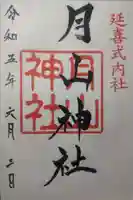 延喜式内社
月山神社
月山
神社
令和五年六月三日